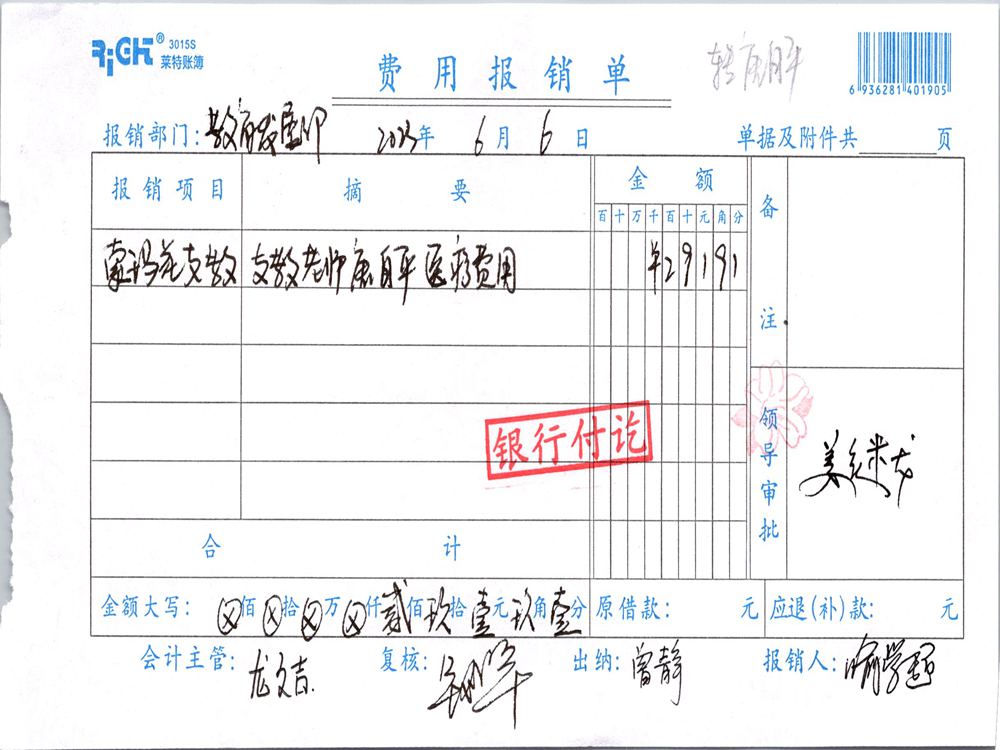 RiGHT® 3015S
莱特账簿
费用报销单
转康自平
6 936281 401905
报销部门: 教育发展部 2023年 6月 6日 单据及附件共 页
报销项目 摘要 金额 备注
百十万千百十元角分
支教 支教老师康自平医疗费用 ¥29191
银行付讫
领导审批
合计
金额大写: ⊗佰⊗拾⊗万⊗仟贰佰玖拾壹元玖角壹分 原借款: 元 应退(补)款: 元
会计主管: 龙文吉 复核: 出纳: 曾静 报销人: 喻学超